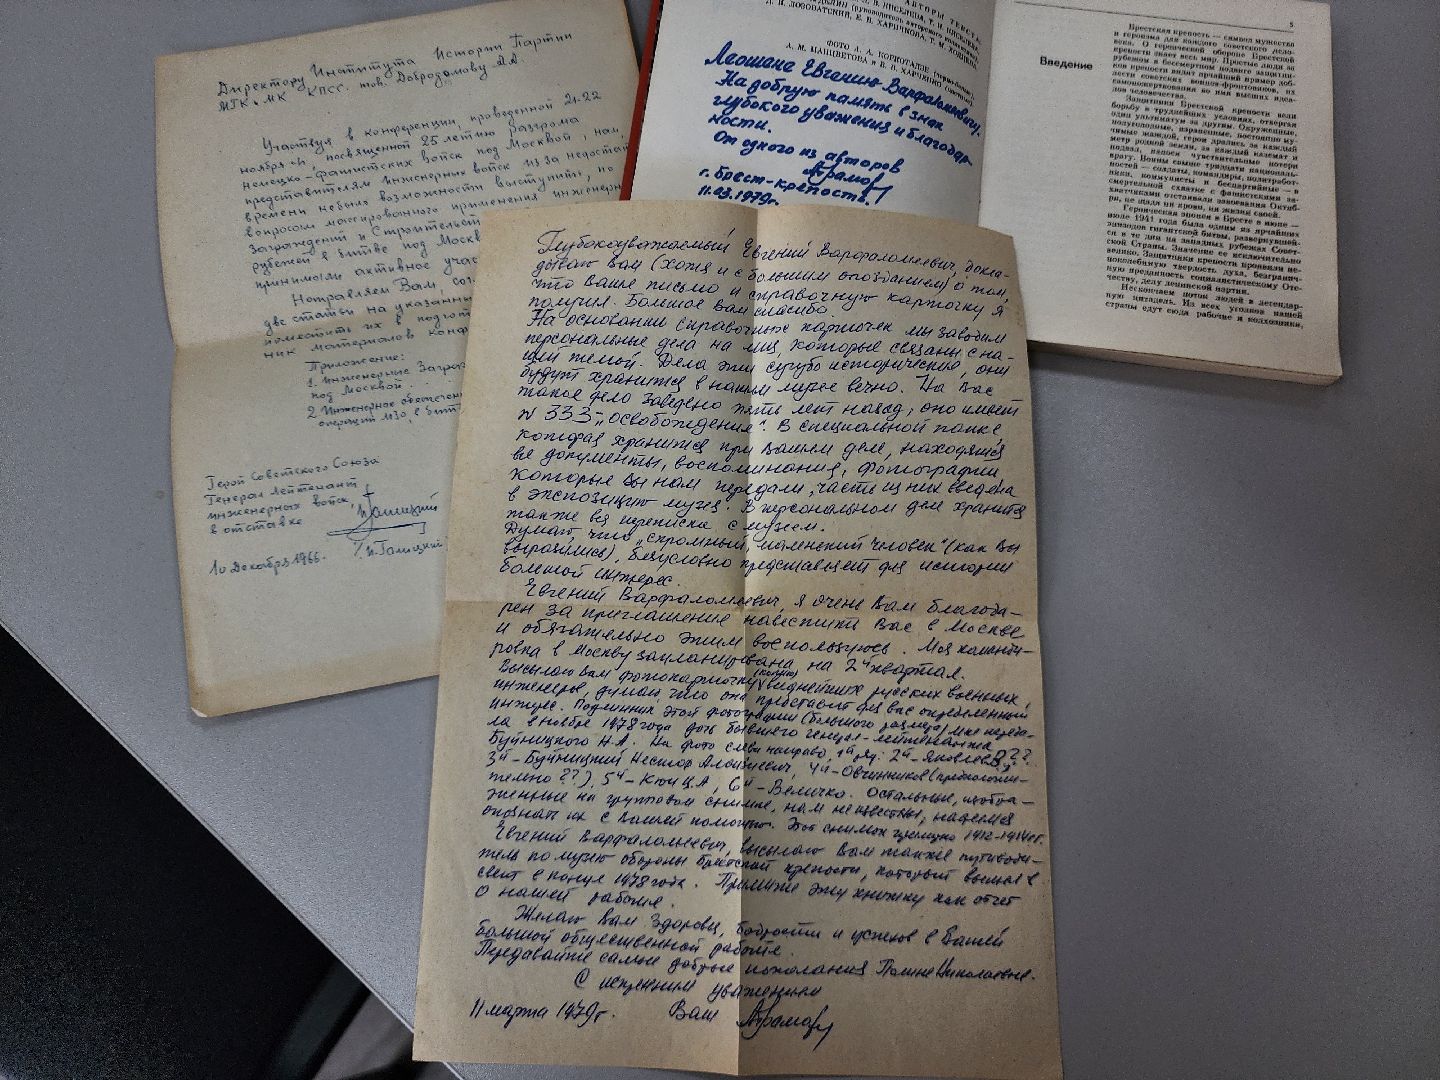 Директору Института Истории Партии
МГК и МК КПСС. тов. Доброхотову
Участвуя в конференции, проведенной 21-22
ноября, посвященной 25 летию разгрома
немецко-фашистских войск под Москвой, нам,
представителям инженерных войск из за недостат
времени небыло возможности выступить, по
вопросам массированного применения инженерн
заграждений и Строительст
рубежей в битве под Москв
принимали активное учас
Направляем Вам,
две статьи на указанны
поместить их в подгот
ник материалов конф
Приложение:
1. Инженерные Загра
под Москвой.
2 Инженерное обеспечен
операций МЗО, в битв
Герой Советского Союза
Генерал лейтенант
инженерных войск,
в отставке
/И. Галицкий
10 Декабря 1966.
АВТОРЫ ТЕКСТА:
ФОТО
Леошене Евгению Варфаломеевичу.
На добрую память в знак
глубокого уважения и благодар-
ности.
От одного из авторов
Абрамов
г. Брест-крепость.
11.03.1979г.
5
Введение
Брестская крепость — символ мужества
и героизма для каждого советского чело-
века. О героической обороне Брестской
крепости знает весь мир. Простые люди за
рубежом в бессмертном подвиге защитни-
ков крепости видят ярчайший пример доб-
лести советских воинов-фронтовиков, их
самопожертвования во имя высших идеа-
лов человечества.
Защитники Брестской крепости вели
борьбу в труднейших условиях, отвергая
один ультиматум за другим. Окруженные,
полуголодные, израненные, постоянно му-
чимые жаждой, герои дрались за каждый
метр родной земли, за каждый каземат и
подвал, нанося чувствительные потери
врагу. Воины свыше тридцати националь-
ностей — солдаты, командиры, политработ-
ники, коммунисты и беспартийные — в
смертельной схватке с фашистскими за-
хватчиками отстаивали завоевания Октяб-
ря, не щадя ни крови, ни жизни своей.
Героическая эпопея в Бресте в июне —
июле 1941 года была одним из ярчайших
эпизодов гигантской битвы, развернувшей-
ся в те дни на западных рубежах Совет-
ской Страны. Значение ее исключительно
велико. Защитники крепости проявили не-
поколебимую твердость духа, безгранич-
ную преданность социалистическому Оте-
честву, делу ленинской партии.
Нескончаем поток людей в легендар-
ную цитадель. Из всех уголков нашей
страны едут сюда рабочие и колхозники,
Глубокоуважаемый Евгений Варфаломеевич, докла-
дываю Вам (хотя и с большим опозданием) о том,
что Ваше письмо и справочную карточку я
получил. Большое Вам спасибо.
На основании справочных карточек мы заводим
персональные дела на лиц, которые связаны с на-
шей темой. Дела эти сугубо исторические, они
будут хранится в нашем музее вечно. На Вас
такое дело заведено пять лет назад, оно имеет
№ 333 - "освобождения". В специальной папке
которая хранится при Вашем деле, находятся
все документы, воспоминания, фотографии,
которые Вы нам передали, часть из них введена
в экспозицию музея. В персональном деле хранится
также вся переписка с музеем.
Думаю, что "скромный, маленский человек" (как Вы
выразились), безусловно представляет для истории
большой интерес.
Евгений Варфаломеевич, я очень Вам благода-
рен за приглашение навестить Вас в Москве
и обязательно этим воспользуюсь. Моя команди-
ровка в Москву запланирована на 2й квартал.
Высылаю Вам фотокарточку (копию) виднейших русских военных
инженеров, думаю что она представит для Вас определенный
интерес. Подлинник этой фотографии (большого размера) мне переда-
ла в ноябре 1978 года дочь бывшего генерал-лейтенанта
Буйницкого Н.А. На фото слева направо, 1й ряд: 2й - Яковлев В.??
3й - Буйницкий Нестор Алоизиевич, 4й - Овчинников (предположи-
тельно??), 5й - Кюи Ц.А., 6й - Величко. Остальные, изобра-
женные на групповом снимке, нам неизвестны, надеемся
опознать их с Вашей помощью. Этот снимок 1912-1914гг.
Евгений Варфаломеевич, высылаю Вам также путеводи-
тель по музею обороны Брестской крепости, который вышел в
свет в конце 1978 года. Примите эту книжку как отчет
о нашей работе.
Желаю Вам здоровья, бодрости и успехов в Вашей
большой общественной работе.
Передавайте самые добрые пожелания Полине Николаевне.
С искренним уважением
11 марта 1979г. Ваш Абрамов